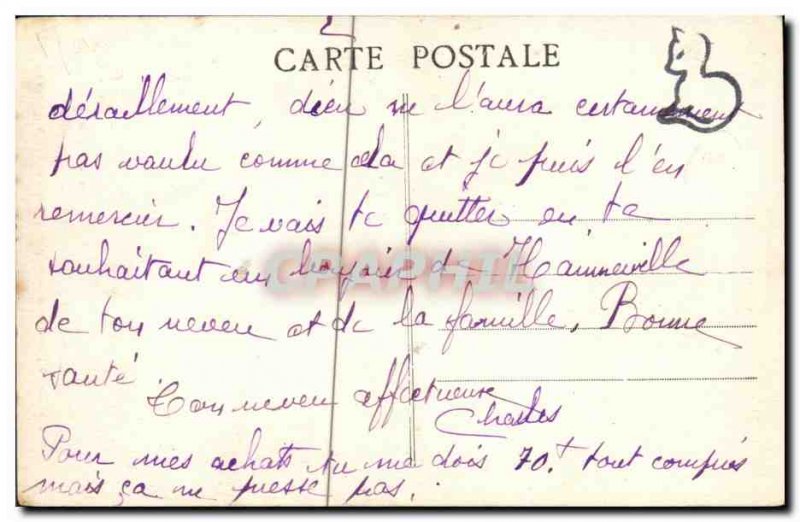 CARTE POSTALE
déraillement, dieu ne l'aura certainement
pas voulu comme cela et je puis l'en
remercier. Je vais te quitter en te
souhaitant un bonjour de Hainneville
de ton neveu et de la famille, Bonne
santé.
Ton neveu affectueux
Charles
Pour mes achats tu me dois 70.f tout compris
mais ça ne presse pas.
CPAPHIL